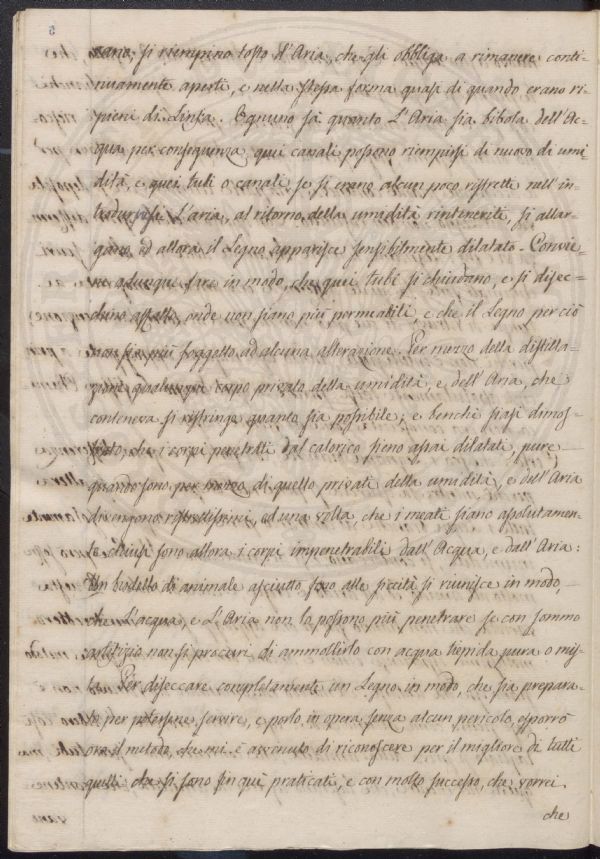 8
cano, si riempino tosto d'Aria, che gli obbliga a rimanere conti-
nuamente aperti, e nella stessa forma quasi di quando erano ri-
pieni di Linfa. Ognuno sà quanto L'Aria sia bibola dell'Ac-
qua per conseguenza quei canali possono riempirsi di nuovo di umi
dità, e quei tubi o canali se si erano alcun poco ristretti nell'in-
tradurvisi L'aria, al ritorno della umidità rinteneriti, si allar-
gano, ed allora il Legno apparisce sensibilmente dilatato. Convie-
ne adunque fare in modo, che quei tubi si chiudano, e si disec-
chino affatto, onde non siano più permeabili, e che il Legno perciò
non sia più soggetto ad alcuna alterazione. Per mezzo della distilla-
zione qualunque corpo privato della umidità, e dell'Aria, che
conteneva si ristringe quanto sia possibile; e benchè siasi dimos-
trato, che i corpi penetrati dal calorico sieno assai dilatati, pure
quando sono per mezzo di quello privati della umidità, e dell'Aria
divengono ristrettissimi, ed una volta, che i meati siano assolutamen-
te chiusi sono allora i corpi impenetrabili dall'Acqua, e dall'Aria:
Un budello di animale asciutto fino alla siccità si riunisce in modo,
che L'acqua, e L'Aria non lo possono più penetrare se con sommo
artifizio non si procuri di ammollirlo con acqua tiepida pura o mis-
ta. Per diseccare completamente un Legno in modo, che sia prepara-
to per potersene servire, e porlo in opera senza alcun pericolo, esporrò
ora il metodo, che mi è avvenuto di riconoscere per il migliore di tutti
quelli che si sono fin quì praticati, e con molto successo, che vorrei
che